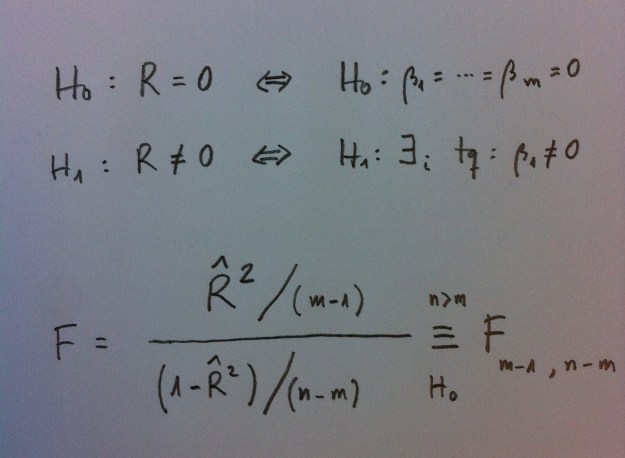 H₀ : R = 0 ⇔ H₀ : β₁ = ··· = βₘ = 0
H₁ : R ≠ 0 ⇔ H₁ : ∃ᵢ tq : β₁ ≠ 0
F = R̂² / (m-1) / (1 - R̂²) / (n-m) n>m ≡ H₀ F m-1 , n-m